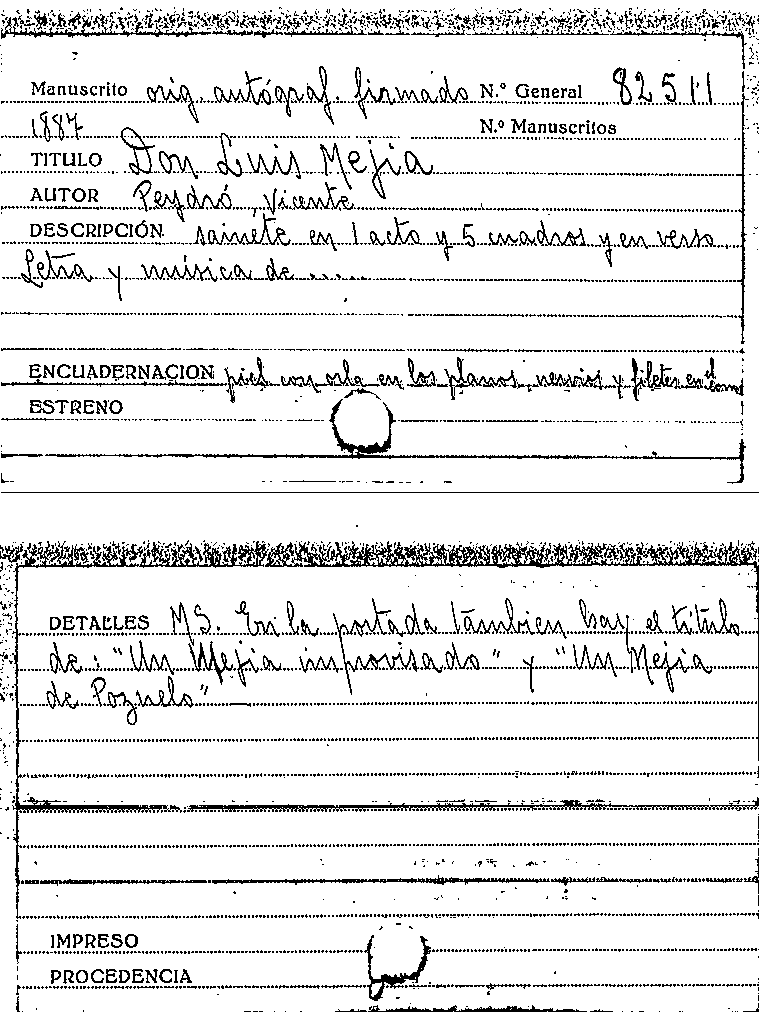 Manuscrito orig. autógraf. firmado N.º General 82511
1887 N.º Manuscritos
TITULO Don Luis Mejia
AUTOR Peydró, Vicente
DESCRIPCIÓN sainete en 1 acto y 5 cuadros y en verso.
Letra y música de .....
ENCUADERNACION piel con orla en los planos, nervios y filetes en el lomo
ESTRENO
DETALLES MS. En la portada tambien hay el titulo
de: "Un Mejia improvisado" y "Un Mejia
de Pozuelo"
IMPRESO
PROCEDENCIA